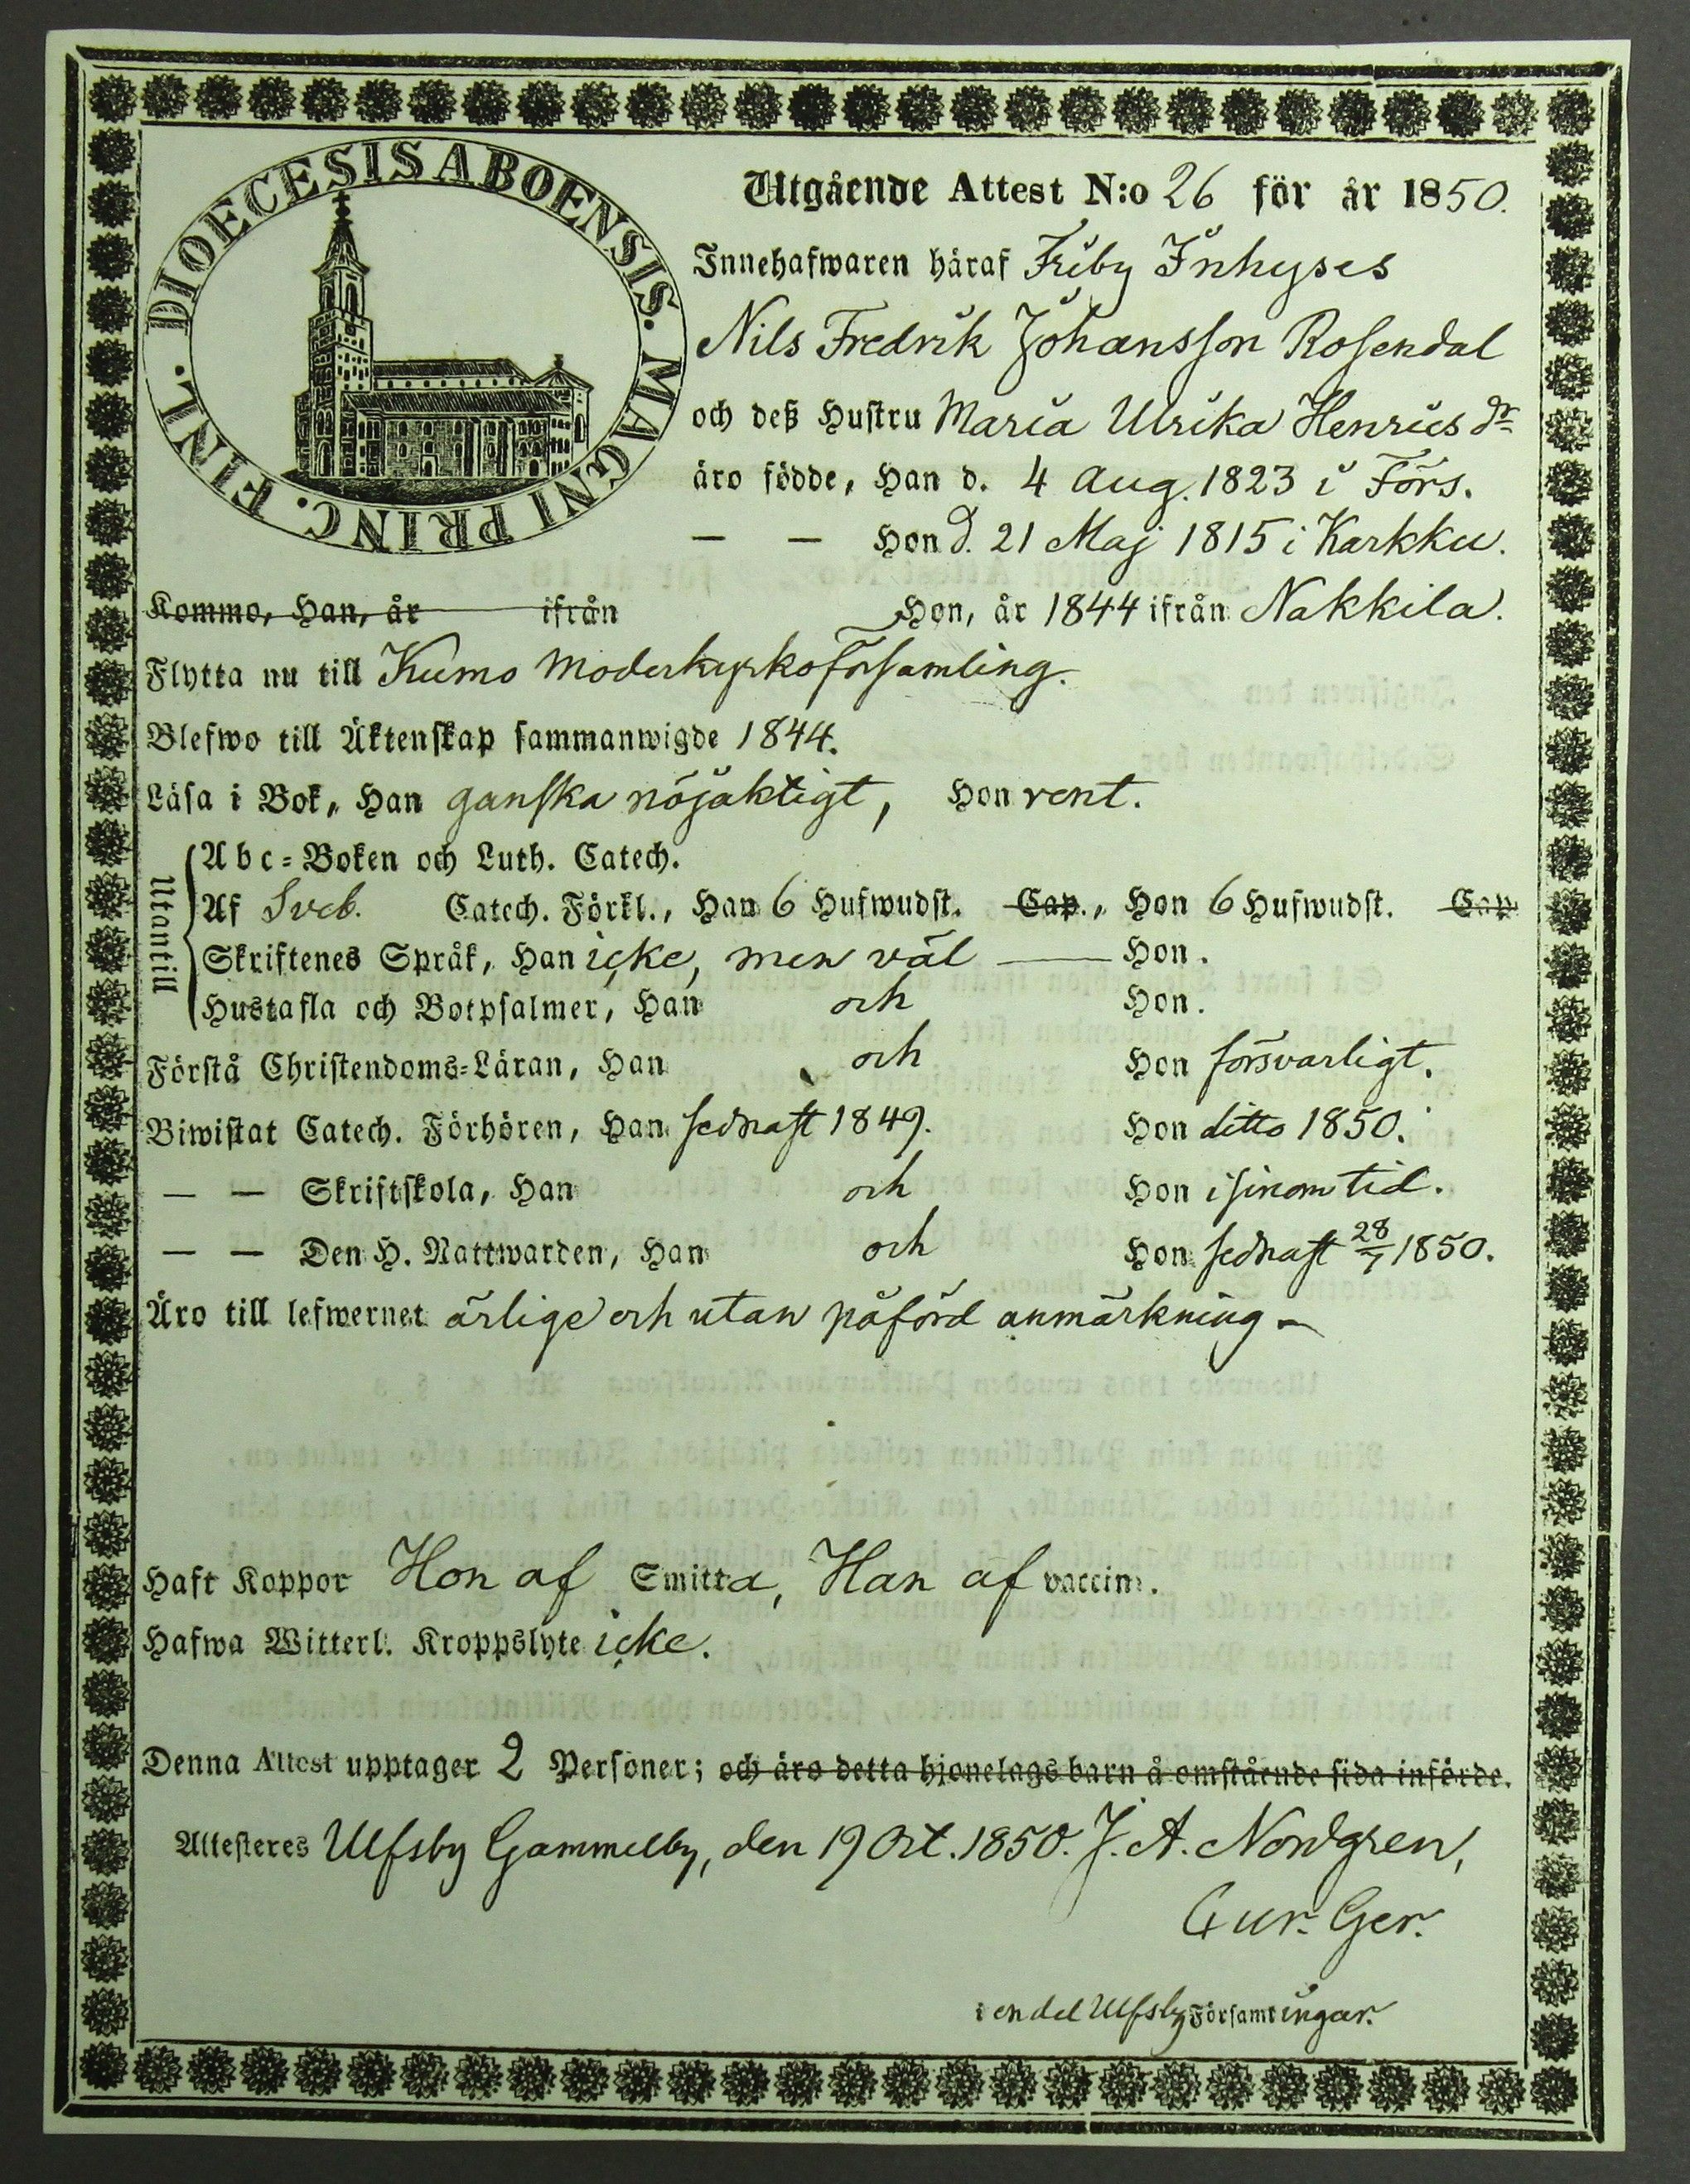 DIOECESIS ABOENSIS. MAGNI PRINC. FINL.
Utgående Attest N:o 26 för år 1850.
Innehafwaren häraf Friby Inhyses
Nils Fredrik Johansson Rosendal
och deß Hustru Maria Ulrika Henricsdr
äro födde, Han d. 4 Aug. 1823 i Förs.
— — Hon d. 21 Maj 1815 i Karkku.
Kommo, Han, år ifrån Hon, år 1844 ifrån Nakkila.
Flytta nu till Kumo Moderkyrkoförsamling.
Blefwo till Äktenskap sammanwigde 1844.
Läsa i Bok, Han ganska nöjaktigt, Hon rent.
Utantill
Abc-Boken och Luth. Catech.
Af Sveb. Catech. Förkl., Han 6 Hufwudst. Cap., Hon 6 Hufwudst. Cap
Skriftenes Språk, Han icke, men väl — Hon.
Hustafla och Botpsalmer, Han och Hon.
Förstå Christendoms-Läran, Han och Hon försvarligt.
Biwistat Catech. Förhören, Han sednast 1849. Hon ditto 1850.
— — Skriftskola, Han och Hon i sinom tid.
— — Den H. Nattwarden, Han och Hon sednast 28/7 1850.
Äro till lefwernet ärlige och utan påförd anmärkning.
Haft Koppor Hon af Smitta, Han af vaccin.
Hafwa Witterl. Kroppslyte icke.
Denna Attest upptager 2 Personer; och äro detta hjonelags barn å omstående sida införde.
Attesteres Ulfsby Gammelby, den 19 Oct. 1850. J. A. Nordgren,
Cur. Ger.
i en del Ulfsby Församlingar.